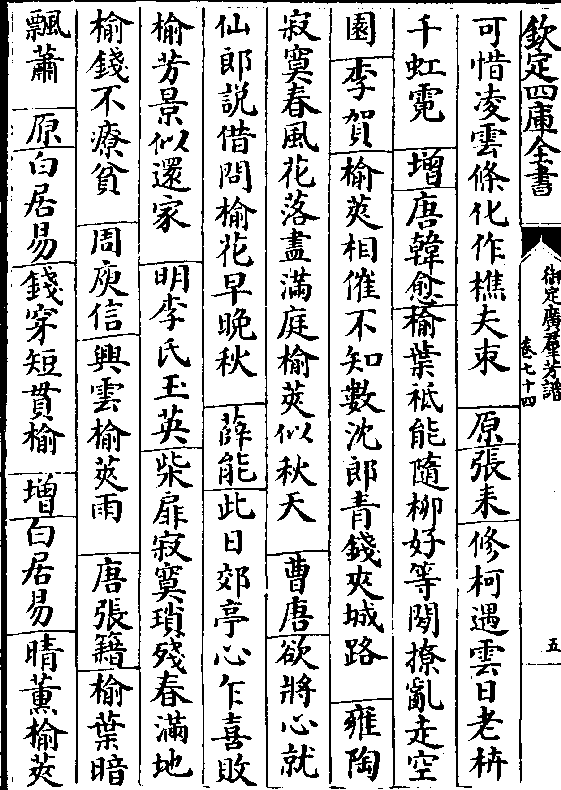 欽定四庫全書
御定廣羣芳譜
卷七十四
五
可惜凌雲條化作樵夫束　原張耒修柯遇雲日老枿
千虹霓　增唐韓愈榆葉祗能隨柳好等閒撩亂走空
園　李賀榆莢相催不知數沈郎青錢夾城路　雍陶
寂寞春風花落盡滿庭榆莢似秋天　曹唐欲將心就
仙郎説借問榆花早晚秋　薛能此日郊亭心乍喜敗
榆芳景似還家　明李氏玉英柴扉寂寞瑣殘春滿地
榆錢不療貧　周庾信興雲榆莢雨　唐張籍榆葉暗
飄蕭　原白居易錢穿短貫榆　增白居易晴薰榆莢